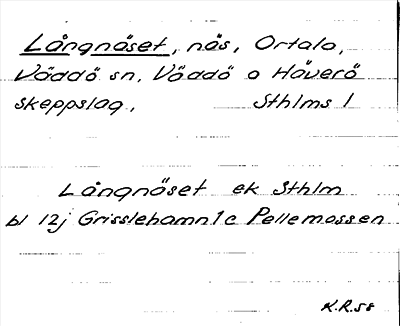 Långnäset, näs, Ortala,
Väddö sn. Väddö o Häverö
skeppslag, Sthlms l
Långnäset ek Sthlm
bl 12j Grisslehamn 1c Pellemossen
K.R.58